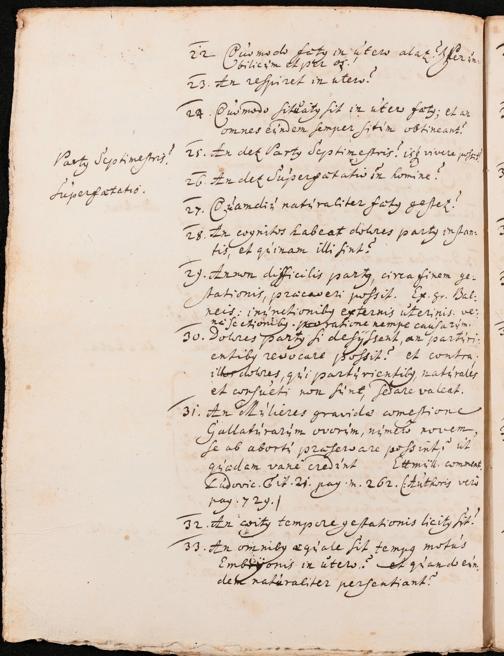 22 Quomodo foetq in utero alatq? Nper um-
bilicum et per os?
23. An respiret in utero?
24. Quomodo situatq sit in utero foetq; et an
omnes eundem semper situm obtineant?
Partq Septimestris?
25. An detq Partq Septimestris? isq vivere possit?
Superfoetatio.
26. An detq Superfoetatio in homine?
27. Quamdiu naturaliter foetq gestetq?
28. An cognitos habeat dolores partq instan-
tis, et quinam illi sint?
29. Annon difficilis partq, circa finem ge-
stationis, praecaveri possit. Ex. gr. Bal-
neis: inunctionibq externis uterinis. ve-
nae sectionibq. pro ratione nempe causarum.
30. Dolores partq si defuissent, an parturi-
entibq revocare possit? et contra.
illos dolores, qui parturientibq naturales
et consueti non sunt, sedare valeat.
31. An Mulieres gravidae comestione
Gallaturarum ovorum, nimio novem,
se ab abortu praeservare possint? ut
quaedam vane credunt Ettmüll. comment.
Ludovic. p. m. 262. (Authoris vero
pag. 729.)
32. An coitq tempore gestationis licitq sit?
33. An omnibq aequale sit tempq motus
Embryonis in utero? et quando eun-
dem naturaliter persentiant?